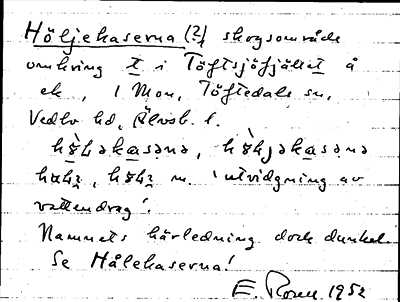 Höljekaserna (?) skogsområde
omkring t i Töftsjöfjället å
ek, 1 Mon, Töftedals sn,
Vedbo hd, Älvsb. l.
m. 'utvidgning av
vattendrag'.
Namnets härledning dock dunkel.
Se Hålekaserna!
E. Rosen 1952